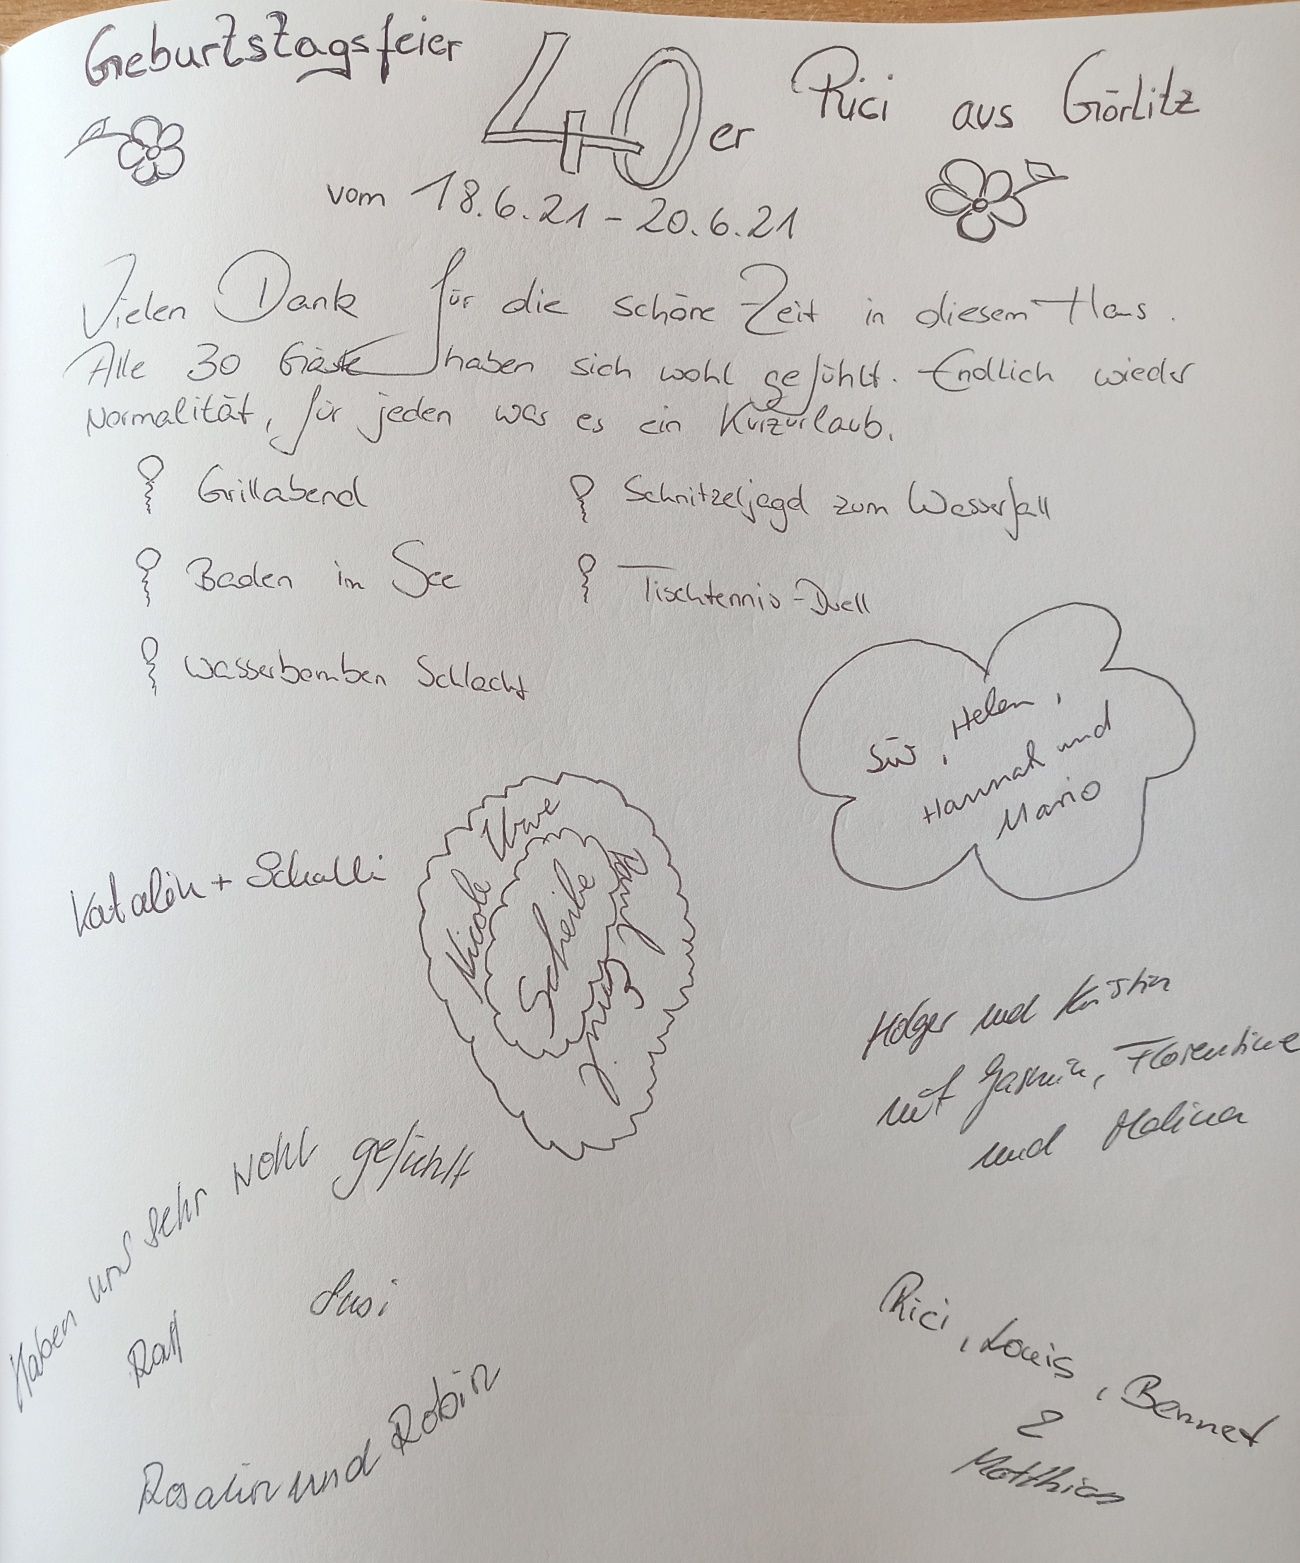 Geburtstagsfeier 40er Rici aus Görlitz
vom 18.6.21 - 20.6.21
Vielen Dank für die schöne Zeit in diesem Haus.
Alle 30 Gäste haben sich wohl gefühlt. Endlich wieder
Normalität, für jeden was es ein Kurzurlaub.
Grillabend
Schnitzeljagd zum Wasserfall
Baden im See
Tischtennis-Duell
Wasserbomben Schlacht
Helen,
Hannah und
Mario
Uwe
Nicole
Scheibe
Katalin + Schalli
Holger und Kristin
mit Jasmin, Florentine
und Malina
Haben uns sehr wohl gefühlt
Susi
Ralf
Rosalin und Robin
Rici, Louis, Bennet
&
Matthias